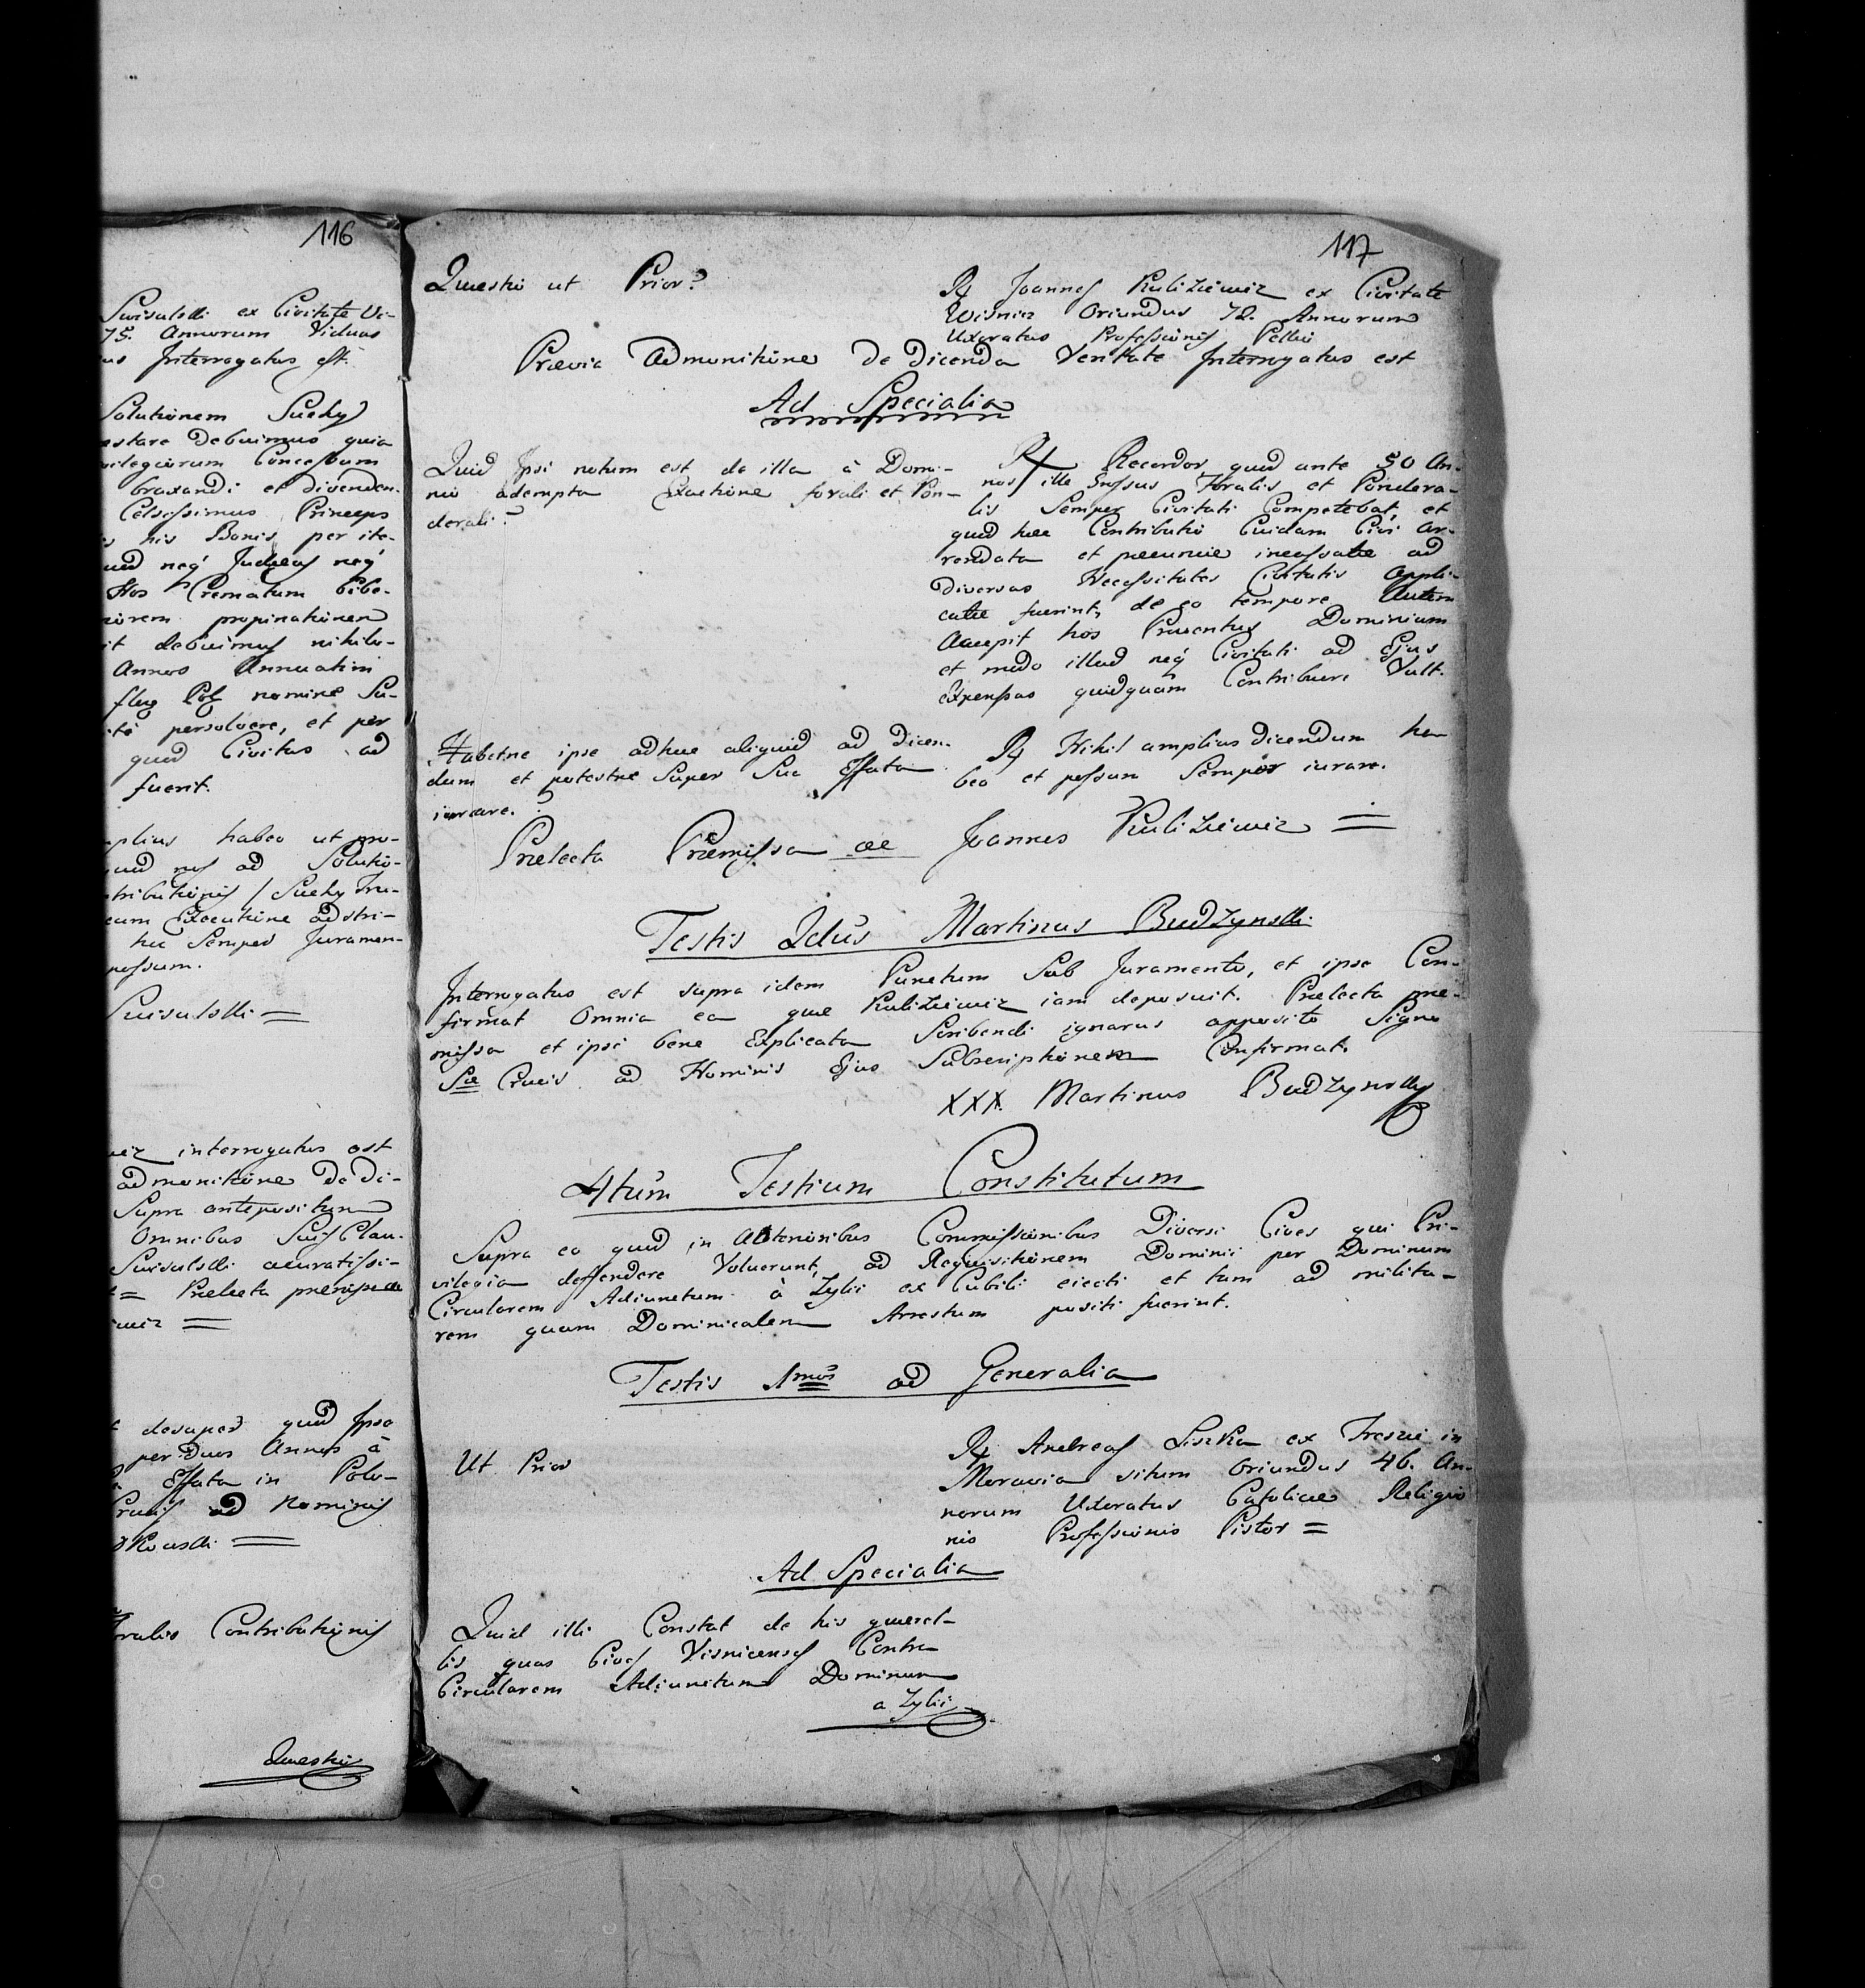 116
Swisulski ex Civitate Vi-
75. Annorum Viduus
us Interrogatus est.
Solutionem Suchy
estare Debuimus quia
vilegiorum Concessum
braxandi et divenden-
Celsissimus Princeps
his Bonis per ite-
neq Judaeos neq
Hos Crematum bibe-
propinationem
it debuimus nihilo-
Annos Annuatim
nomine Su-
persolvere, et per
quod Civitas ad
fuerit.
amplius habeo ut pro-
quod nos ad Solutio-
tributionis / Suchy
cum Executione adstri-
hic Semper Juramen-
possum.
Swisulski =
wicz interrogatus est
admonitione De di-
Supra antepositum
Omnibus Suis Clau-
Swisulski accuratissi-
= Praelecta praemissa
wicz =
desuper quod Ipse
per Duos Annos à
Effata in Polo-
Crucis ad Nominis
=
Foralis Contributionis
Questio
117
Questio ut Prior?
Rx Joannes Kulikiewicz ex Civitate
Wisnicz Oriundus 72. Annorum
Uxoratus Professionis Pellio
Praevia Admonitione De Dicenda Veritate Interrogatus est
Ad Specialia
Quid Ipsi notum est de illa à Domi-
nio adempta Exactione forali et Pon-
derali?
Rx Recordor quod ante 50 An-
nos ille Foralis et Pondera-
lis Semper Civitati Competebat, et
quod haec Contributio Cuidam Civi ar-
rendata et pecuniae incassatae ad
diversas Necessitates Civitatis appli-
catae fuerint, de eo tempore Autem
Accepit hos Proventus Dominium
et modo illud neq Civitati ad Ejus
Expensas quidquam Contribuere Vult.
Habetne ipse adhuc aliquid ad Dicen-
dum et potestne Super Sua Effata
iurare.?
Rx Nihil amplius dicendum ha-
beo et possum Semper iurare.
Praelecta Praemissa ae Joannes Kulikiewicz =
Testis 2dus Martinus Budzynski
Interrogatus est supra idem Punctum Sub Juramento, et ipse Con-
firmat Omnia ea quae Kulikiewicz iam deposuit. Praelecta prae-
missa et ipsi bene Explicata Scribendi ignarus apposito Signo
Sae Crucis ad Nominis Ejus Subscriptionem Confirmat.
XXX Martinus Budzynsky
4tum Testium Constitutum
Supra eo quod in Anterioribus Commissionibus Diversi Cives qui Pri-
vilegia deffendere Voluerunt, ad Requisitionem Dominii per Dominum
Circularem Adiunctum à Zylii ex Cubili eiecti et tum ad milita-
rem quam Dominicalem Arrestum positi fuerint.
Testis 1mus ad Generalia
Ut Prior
Rx Andreas Liszka ex in
Moravia situm Oriundus 46. An-
norum Uxoratus Catolicae Religio
nis Professionis Pistor =
Ad Specialia
Quid illi Constat de his querel-
lis quas Cives Visnicenses Contra
Circularem Adiunctum Dominum
a Zylii